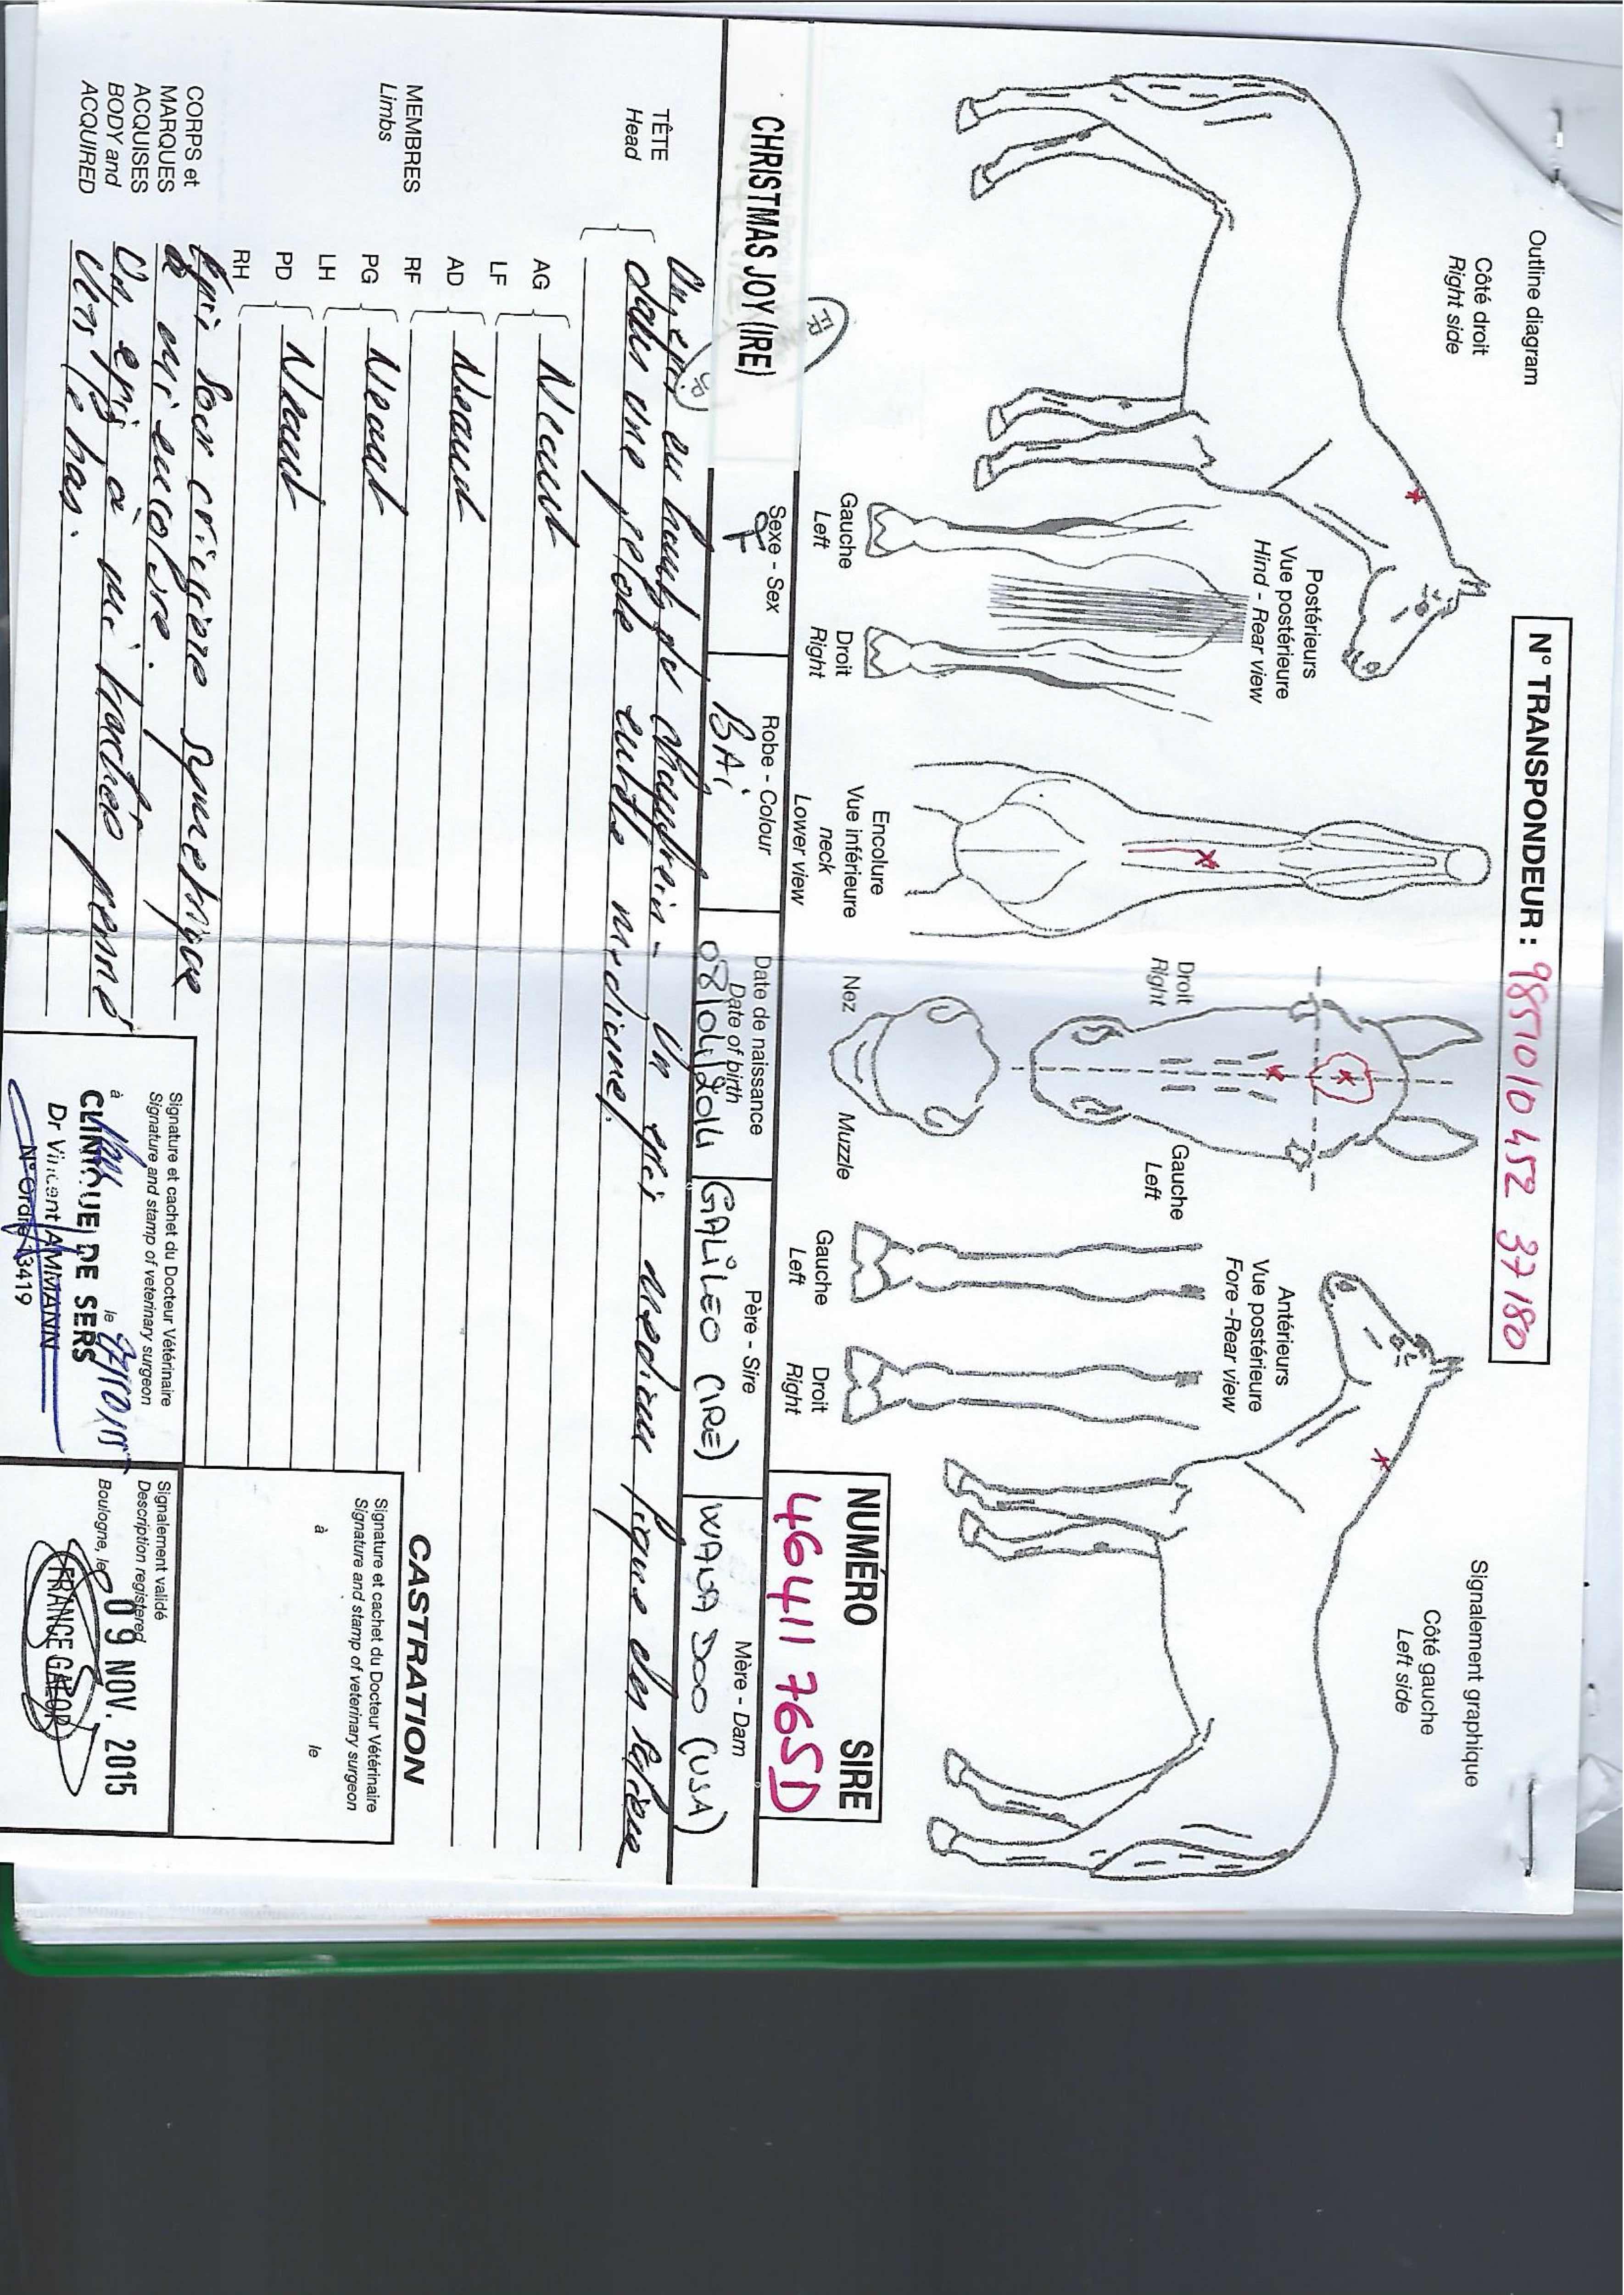 Outline diagram
Signalement graphique
N° TRANSPONDEUR : 985101045237180
Côté droit
Right side
Côté gauche
Left side
Postérieurs
Vue postérieure
Hind - Rear view
Droit
Right
Gauche
Left
Antérieurs
Vue postérieure
Fore - Rear view
Gauche
Left
Droit
Right
Encolure
Vue inférieure
neck
Lower view
Nez
Muzzle
Gauche
Left
Droit
Right
NUMÉRO SIRE
46411765D
CHRISTMAS JOY (IRE)
Sexe - Sex
F
Robe - Colour
BAi
Date de naissance
Date of birth
08/04/2014
Père - Sire
GALiLEO (IRE)
Mère - Dam
WAWA JOO (USA)
TÊTE
Head
Un épi en haut de chanfrein - Un épi médian ligne des salières
dans une pelote entête médiane.
MEMBRES
Limbs
AG
LF
Néant
AD
RF
Néant
PG
LH
Néant
PD
RH
Néant
CASTRATION
Signature et cachet du Docteur Vétérinaire
Signature and stamp of veterinary surgeon
à
le
CORPS et
MARQUES
ACQUISES
BODY and
ACQUIRED
Epi sous crinière symétrique
à mi encolure.
Un épi à mi trachée penné
vers le bas.
Signature et cachet du Docteur Vétérinaire
Signature and stamp of veterinary surgeon
à
le
CLINIQUE DE SERS
Dr Vincent AMMANN
N° Ordre 13419
Signalement validé
Description registered
Boulogne, le 09 NOV. 2015
FRANCE GALOP